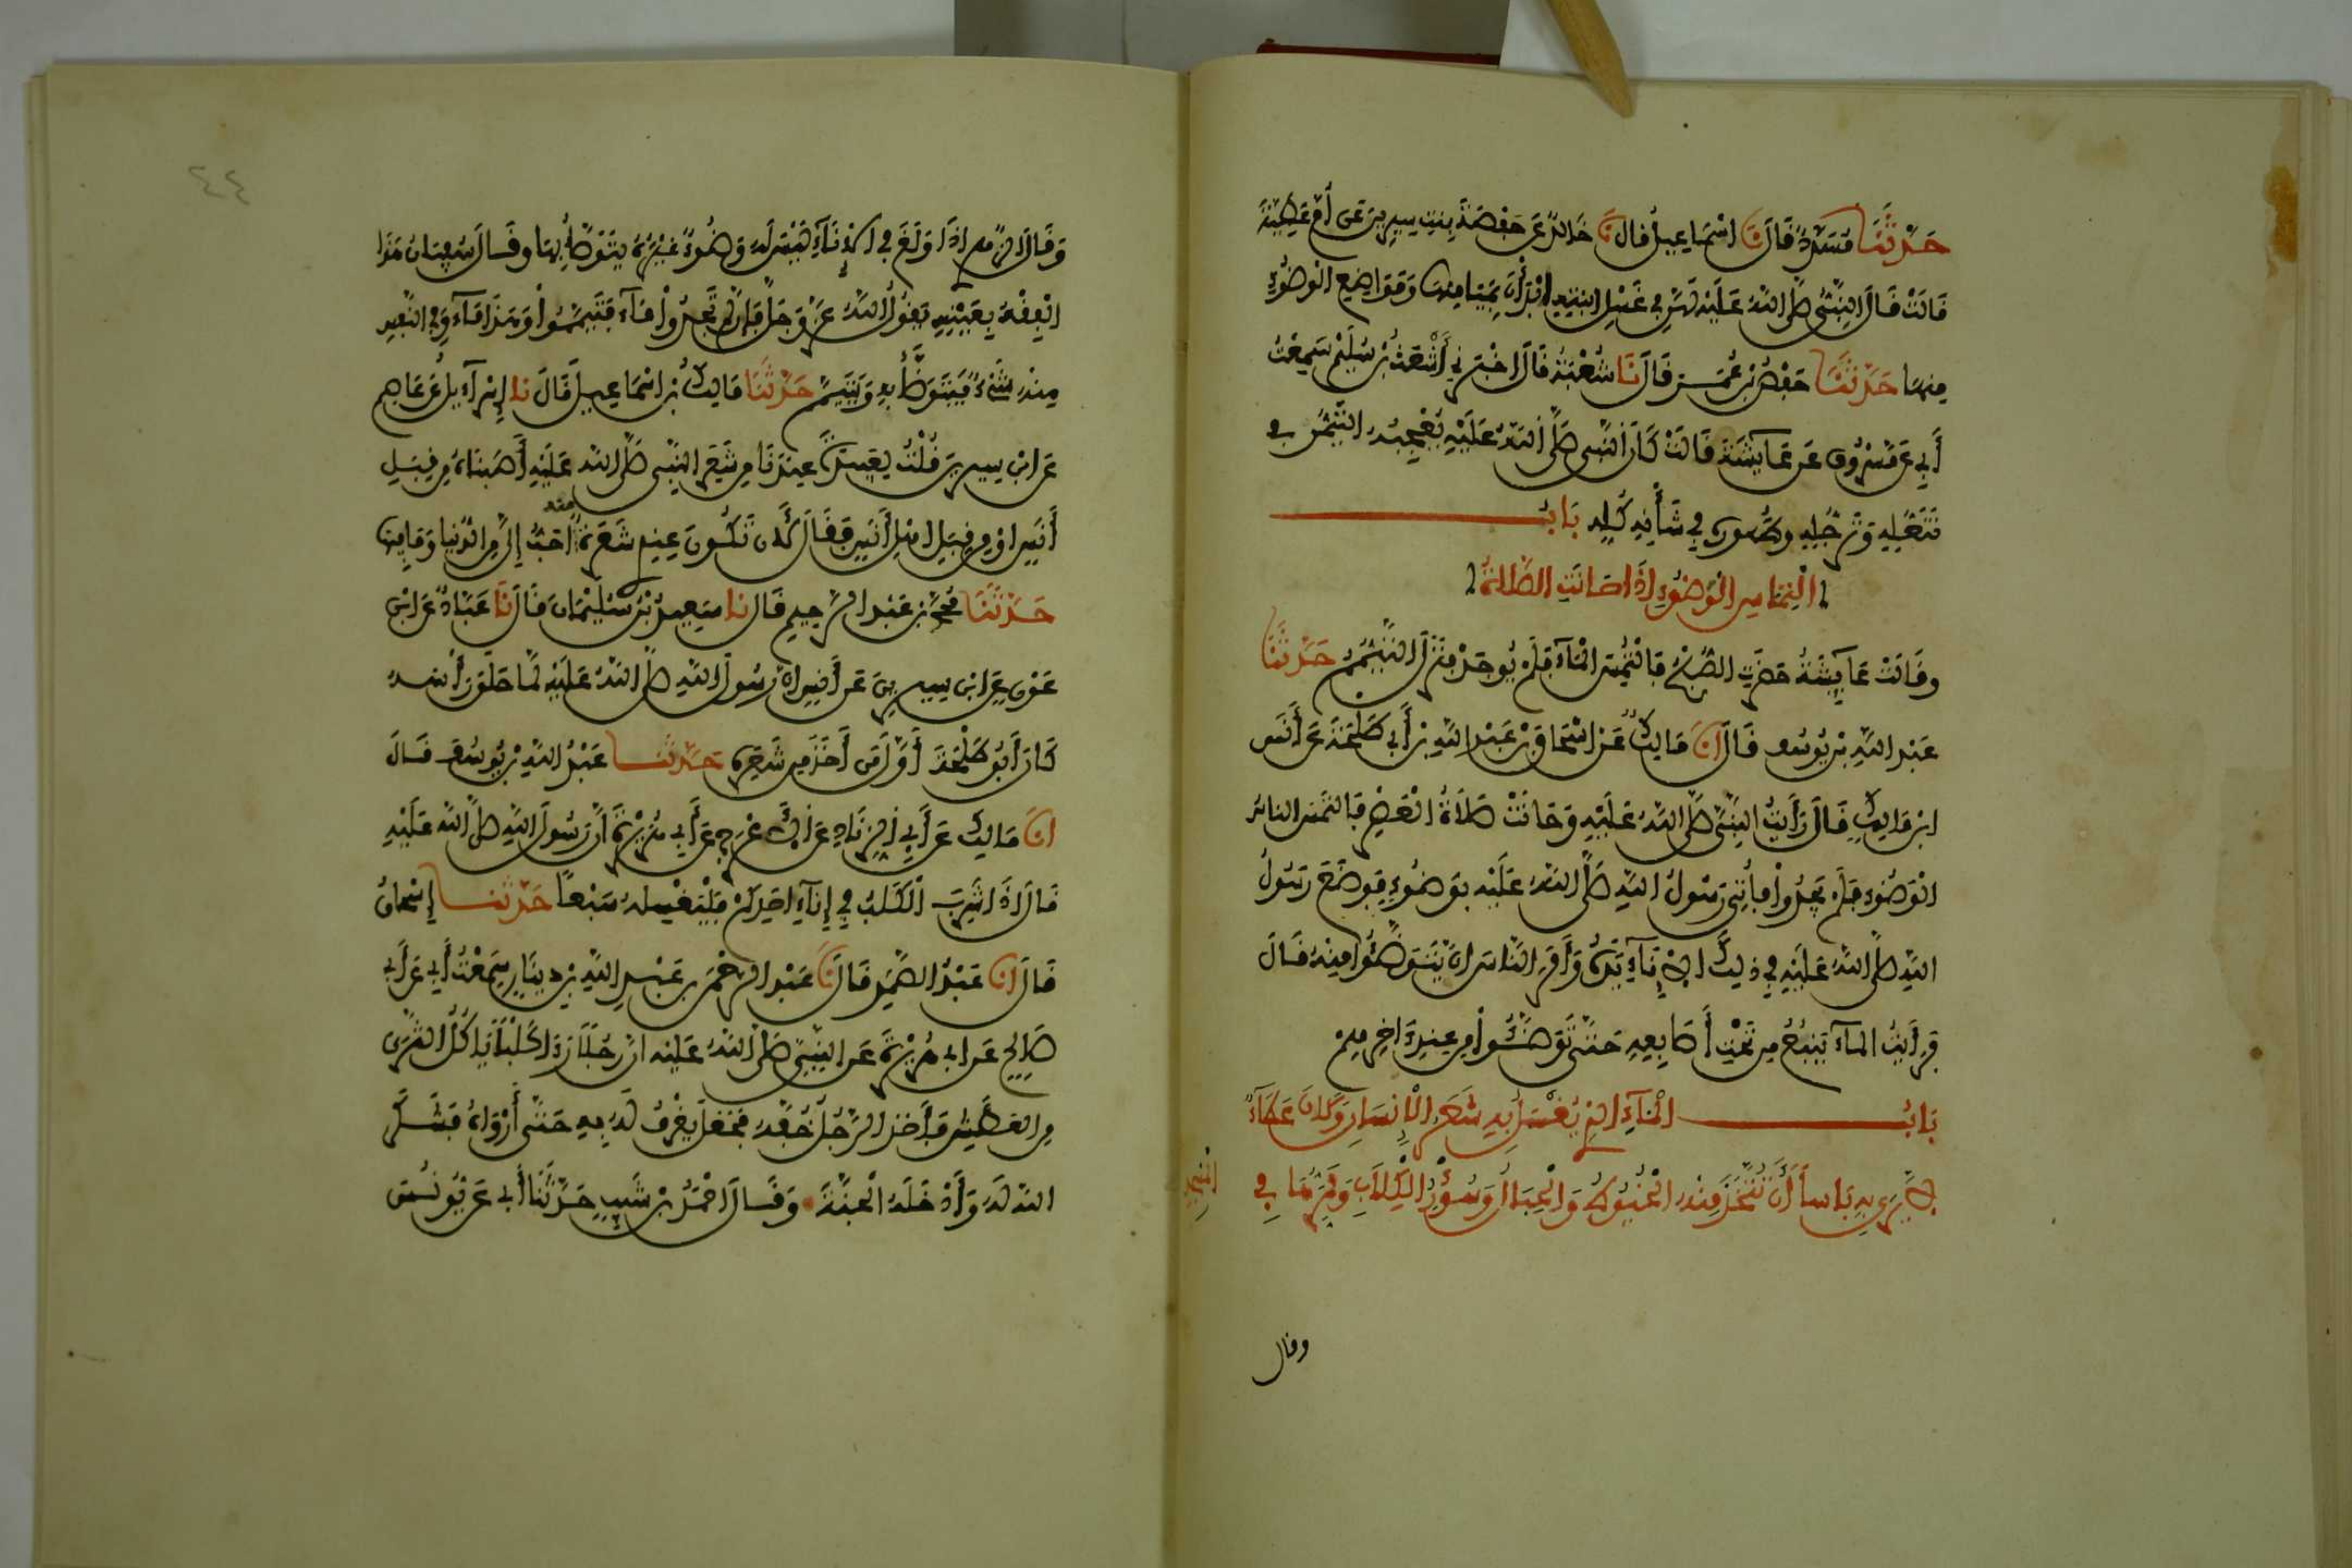 حَدَّثَنَا مُسَدَّدٌ قَالَ نَا اسْمَاعِيلُ قال نَا خَالِدٌ عَن حَفْصَةَ بِنتِ سِيرِينَ عَن أُمِّ عَطِيَّةَ
قَالَتْ قَالَ النَّبِيُّ صَلَّى اللهُ عَلَيْهِ لَهُنَّ فِي غَسْلِ ابْنَتِهِ ابْدَأْنَ بِمَيَامِنِهَا وَمَوَاضِعِ الْوُضُوءِ
مِنهَا حَدَّثَنَا حَفْصُ بْنُ عُمَرَ قَالَ نَا شُعْبَةُ قَالَ اخْبَرَنِي أَشْعَثُ بْنُ سُلَيْمٍ سَمِعْتُ
أَبِي عَن مَسْرُوقٍ عَن عَائِشَةَ قَالَتْ كَانَ النَّبِي صَلَّى اللهُ عَلَيْهِ يُعْجِبُهُ التَّيَمُّنُ فِي
تَنَعُّلِهِ وَتَرَجُّلِهِ وطُهُورِهِ فِي شَأْنِهِ كُلِّهِ بَابُ
الْتِمَاسِ الْوَضُوءِ اذَا حَانَتِ الصَّلَاةُ
وقَالَتْ عَائِشَةُ حَضَرَتِ الصُّبْحُ فَالْتُمِسَ الْمَآءُ فَلَمْ يُوجَدْ فَنَزَلَ التَّيَمُّمُ حَدَّثَنَا
عَبْدُ اللهِ بْنُ يُوسُفَ قَالَ انَا مَالِكٌ عَنِ اسْحَاقَ بْنِ عَبْدِ اللهِ بْنِ أَبِي طَلْحَةَ عَن أَنَسِ
ابْنِ مَالِكٍ قَالَ رَأَيْتُ النَّبِيَّ صَلَّى اللهُ عَلَيْهِ وَحَانَتْ صَلَاةُ الْعَصْرِ فَالتَمَسَ الناسُ
الْوَضُوءَ فَلَمْ يَجِدُوا فَأُتِيَ رَسُولُ اللهِ صَلَّى اللهُ عَلَيْهِ بِوَضُوءٍ فَوَضَعَ رَسُولُ
اللهِ صلَّى اللهُ عَلَيْهِ فِي ذَلِكَ الْإِنَآءِ يَدَهُ وَأَمَرَ النَّاسَ انْ يَتَوَضَّئُوا مِنْهُ قَالَ
فَرَأَيْتُ الْمآءَ يَنْبُعُ مِن تَحْتِ أَصَابِعِهِ حَتَّى تَوَضَّئُوا مِن عِندِ آخِرِهِمْ
بَابُ الْمَآءِ الذِي يُغْسَلُ بِهِ شَعَرُ الْإِنسَانِ وَكَانَ عَطَآءٌ
لَا يَرَى بِهِ بَاسًا أَنْ تُتَّخَذَ مِنْهُ الْخُيُوطُ وَالْحِبَالُ وَسُؤْرِ الْكِلَابِ وَمَمَرِّهَا فِي
الْمَسْجِدِ
وقال
٤٤
وَقَالَ الزُّهْرِي اذَا وَلَغَ فِي الْإِنَآءِ لَيْسَ لَهُ وَضُوءٌ غَيْرُهُ يَتَوَضَّأُ بِهَا وقَالَ سُفْيَانُ هَذَا
الْفِقْهُ بِعَيْنِهِ يَقُولُ اللهُ عَزَّ وَجَلَّ فَإِن لَّمْ تَجِدُوا مَآءً فَتَيَمَّمُوا وَهَذَا مَآءٌ وَفِي النَّفْسِ
مِنْهُ شَيْءٌ فَيَتَوَضَّأُ بِهِ وَيَتَيَمَّمُ حَدَّثَنَا مَالِكُ بْنُ اسْمَاعِيلَ قَالَ نَا إِسْرَآءِيلُ عَن عَاصِمٍ
عَنِ ابْنِ سِيرِينَ قُلْتُ لِعَبِيدَةَ عِنْدَنَا مِن شَعَرِ النَّبِي صَلَّى اللهُ عَلَيْهِ أَصَبْنَاهُ مِن قِبَلِ
أَنَسٍ اوْ مِن قِبَلِ اهْلِ أَنَسٍ فَقَالَ لَأَن تَكُونَ عِندِي شَعَرَةٌ مِنْهُ احَبُّ إِلَيَّ مِنَ الدُّنْيَا وَمَا فِيهَا
حَدَّثَنَا مُحَمَّدُ بْنُ عَبْدِ الرَّحِيمِ قَالَ نَا سَعِيدُ بْنُ سُلَيْمَانَ قَالَ نَا عَبَّادٌ عَنِ ابْنِ
عَوْنٍ عَنِ ابْنِ سِيرِينَ عَن أَنَسٍ انَّ رَسُولَ اللهِ صَلَّى اللهُ عَلَيْهِ لَمَّا حَلَقَ رَأْسَهُ
كَانَ أَبُو طَلْحَةَ أَوَّلَ مَن أَخَذَ مِن شَعَرِهِ حَدَّثَنَا عَبْدُ اللهِ بْنُ يُوسُفَ قَالَ
انَا مَالِكٌ عَن أَبِي الزِّنَادِ عَنِ الْأَعْرَجِ عَن أَبِي هُرَيْرَةَ أَنَّ رَسُولَ اللهِ صَلَّى اللهُ عَلَيْهِ
قَالَ اذَا شَرِبَ الْكَلْبُ فِي إِنَآءِ احَدِكُمْ فَلْيَغْسِلْهُ سَبْعًا حَدَّثَنَا إِسْحَاقُ
قَالَ انَا عَبْدُ الصَّمَدِ قَالَ نَا عَبْدُ الرَّحْمَنِ بْنُ عَبْدِ اللهِ بْنِ دِينَارٍ سَمِعْتُ أَبِي عَن أَبِي
صَالِحٍ عَن ابِي هُرَيْرَةَ عَنِ النَّبِيِّ صَلَّى اللهُ عَلَيْهِ انَّ رَجُلًا رَءَا كَلْبًا يَاكُلُ الثَّرَى
مِنَ العَطَشِ فَأَخَذَ الرَّجُلُ خُفَّهُ فَجَعَلَ يَغْرِفُ لَهُ بِهِ حَتَّى أَرْوَاهُ فَشَكَرَ
اللهُ لَهُ وَأَدْخَلَهُ الْجَنَّةَ وَقَالَ احْمَدُ بْنُ شَبِيبٍ حَدَّثَنَا أَبِي عَن يُونُسَ